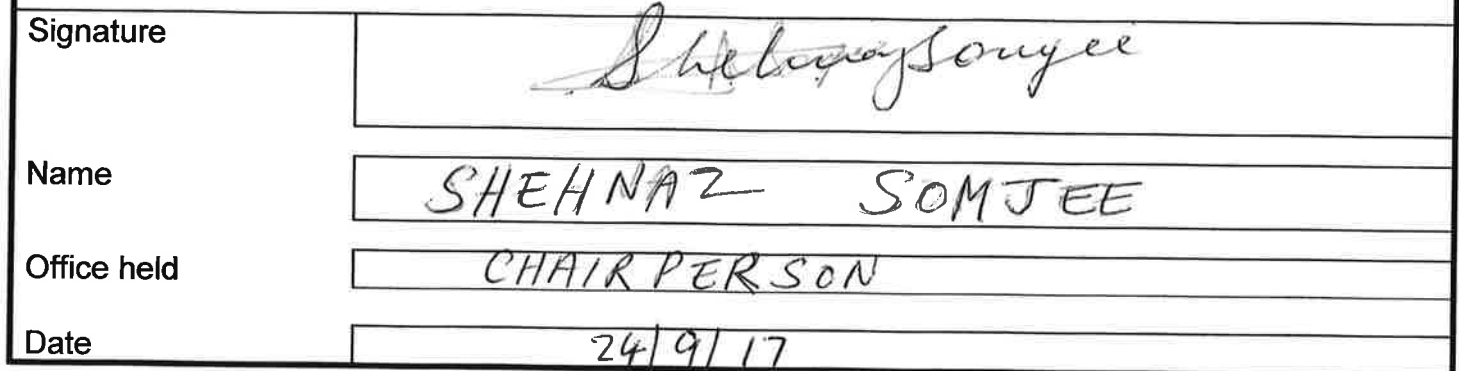 Signature Shehnaz Somjee
Name SHEHNAZ SOMJEE
Office held CHAIRPERSON
Date 24/9/17